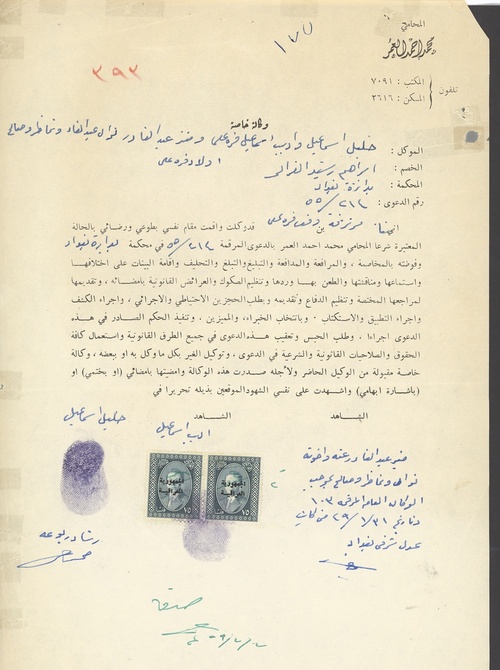 المحامي
محمد احمد العمر
١٧٥
٣٩٣
تلفون
المكتب : ٧٠٩١
المسكن : ٢٦١٦
وكالة خاصة
الموكل : خليل اسماعيل واديب اسماعيل قره علي و منير عبد القادر نوال عبد القادر و نماظر و صالح
اولاد قره علي
الخصم : ابراهيم رشيد
المحكمة : بداءة بغداد
رقم الدعوى : ٢١٣ / ٥٥
بن وقف قره علي قد وكلت واقمت مقام نفسي بطوعي ورضائي بالحالة
المعتبرة شرعا المحامي محمد احمد العمر بالدعوى المرقمة ٢١٣ / ٥٥ في محكمة بداءة بغداد
وفوضته بالمخاصمة ، والمرافعة والمدافعة والتبليغ والتبلغ والتحليف واقامة البينات على اختلافها
واستماعها ومناقشتها والطعن بها وردها وتنظيم الصكوك والعرائض القانونية بامضائه ، وتقديمها
لمراجعها المختصة وتنظيم الدفاع وتقديمه وبطلب الحجزين الاحتياطي والاجرائي ، واجراء الكشف
واجراء التطبيق والاستكتاب . وبانتخاب الخبراء، والمميزين . وتنفيذ الحكم الصادر في هذه
الدعوى اجراءا ، وطلب الحبس وتعقيب هذه الدعوى في جميع الطرق القانونية واستعمال كافة
الحقوق والصلاحيات القانونية والشرعية في الدعوى . وتوكيل الغير بكل ما وكل به او ببعضه ، وكالة
خاصة مقبولة من الوكيل الحاضر ولاجله صدرت هذه الوكالة وامضيتها بامضائي (او بختمي) او
(باشارة ابهامي) واشهدت على نفسي الشهود الموقعين بذيله تحريرا في
الشاهد
الشاهد
خليل اسماعيل
اديب اسماعيل
منير عبد القادر عنه واخوته
نوال و نماظر و صالح بموجب
الوكالة العامة المرقمة ١٠٣
عدول شرقي بغداد
الجمهورية
العراقية
١٥
الجمهورية
العراقية
١٥